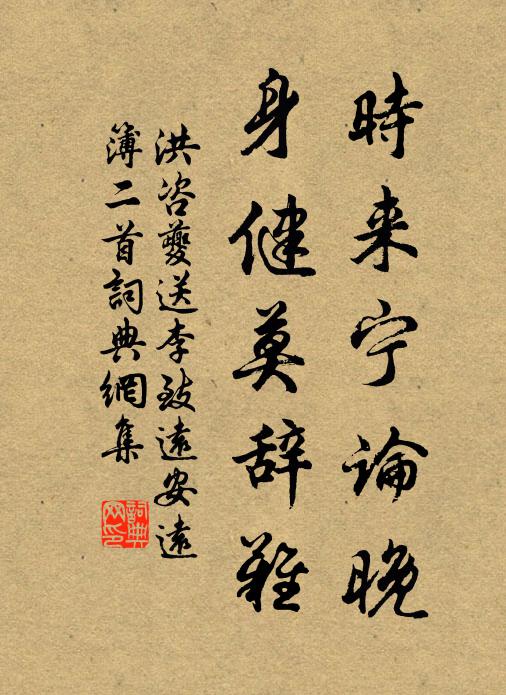 時来宁論晚
身健莫辞難
洪咨夔送李致遠安遠
簿二首詞典網集
詞典网印